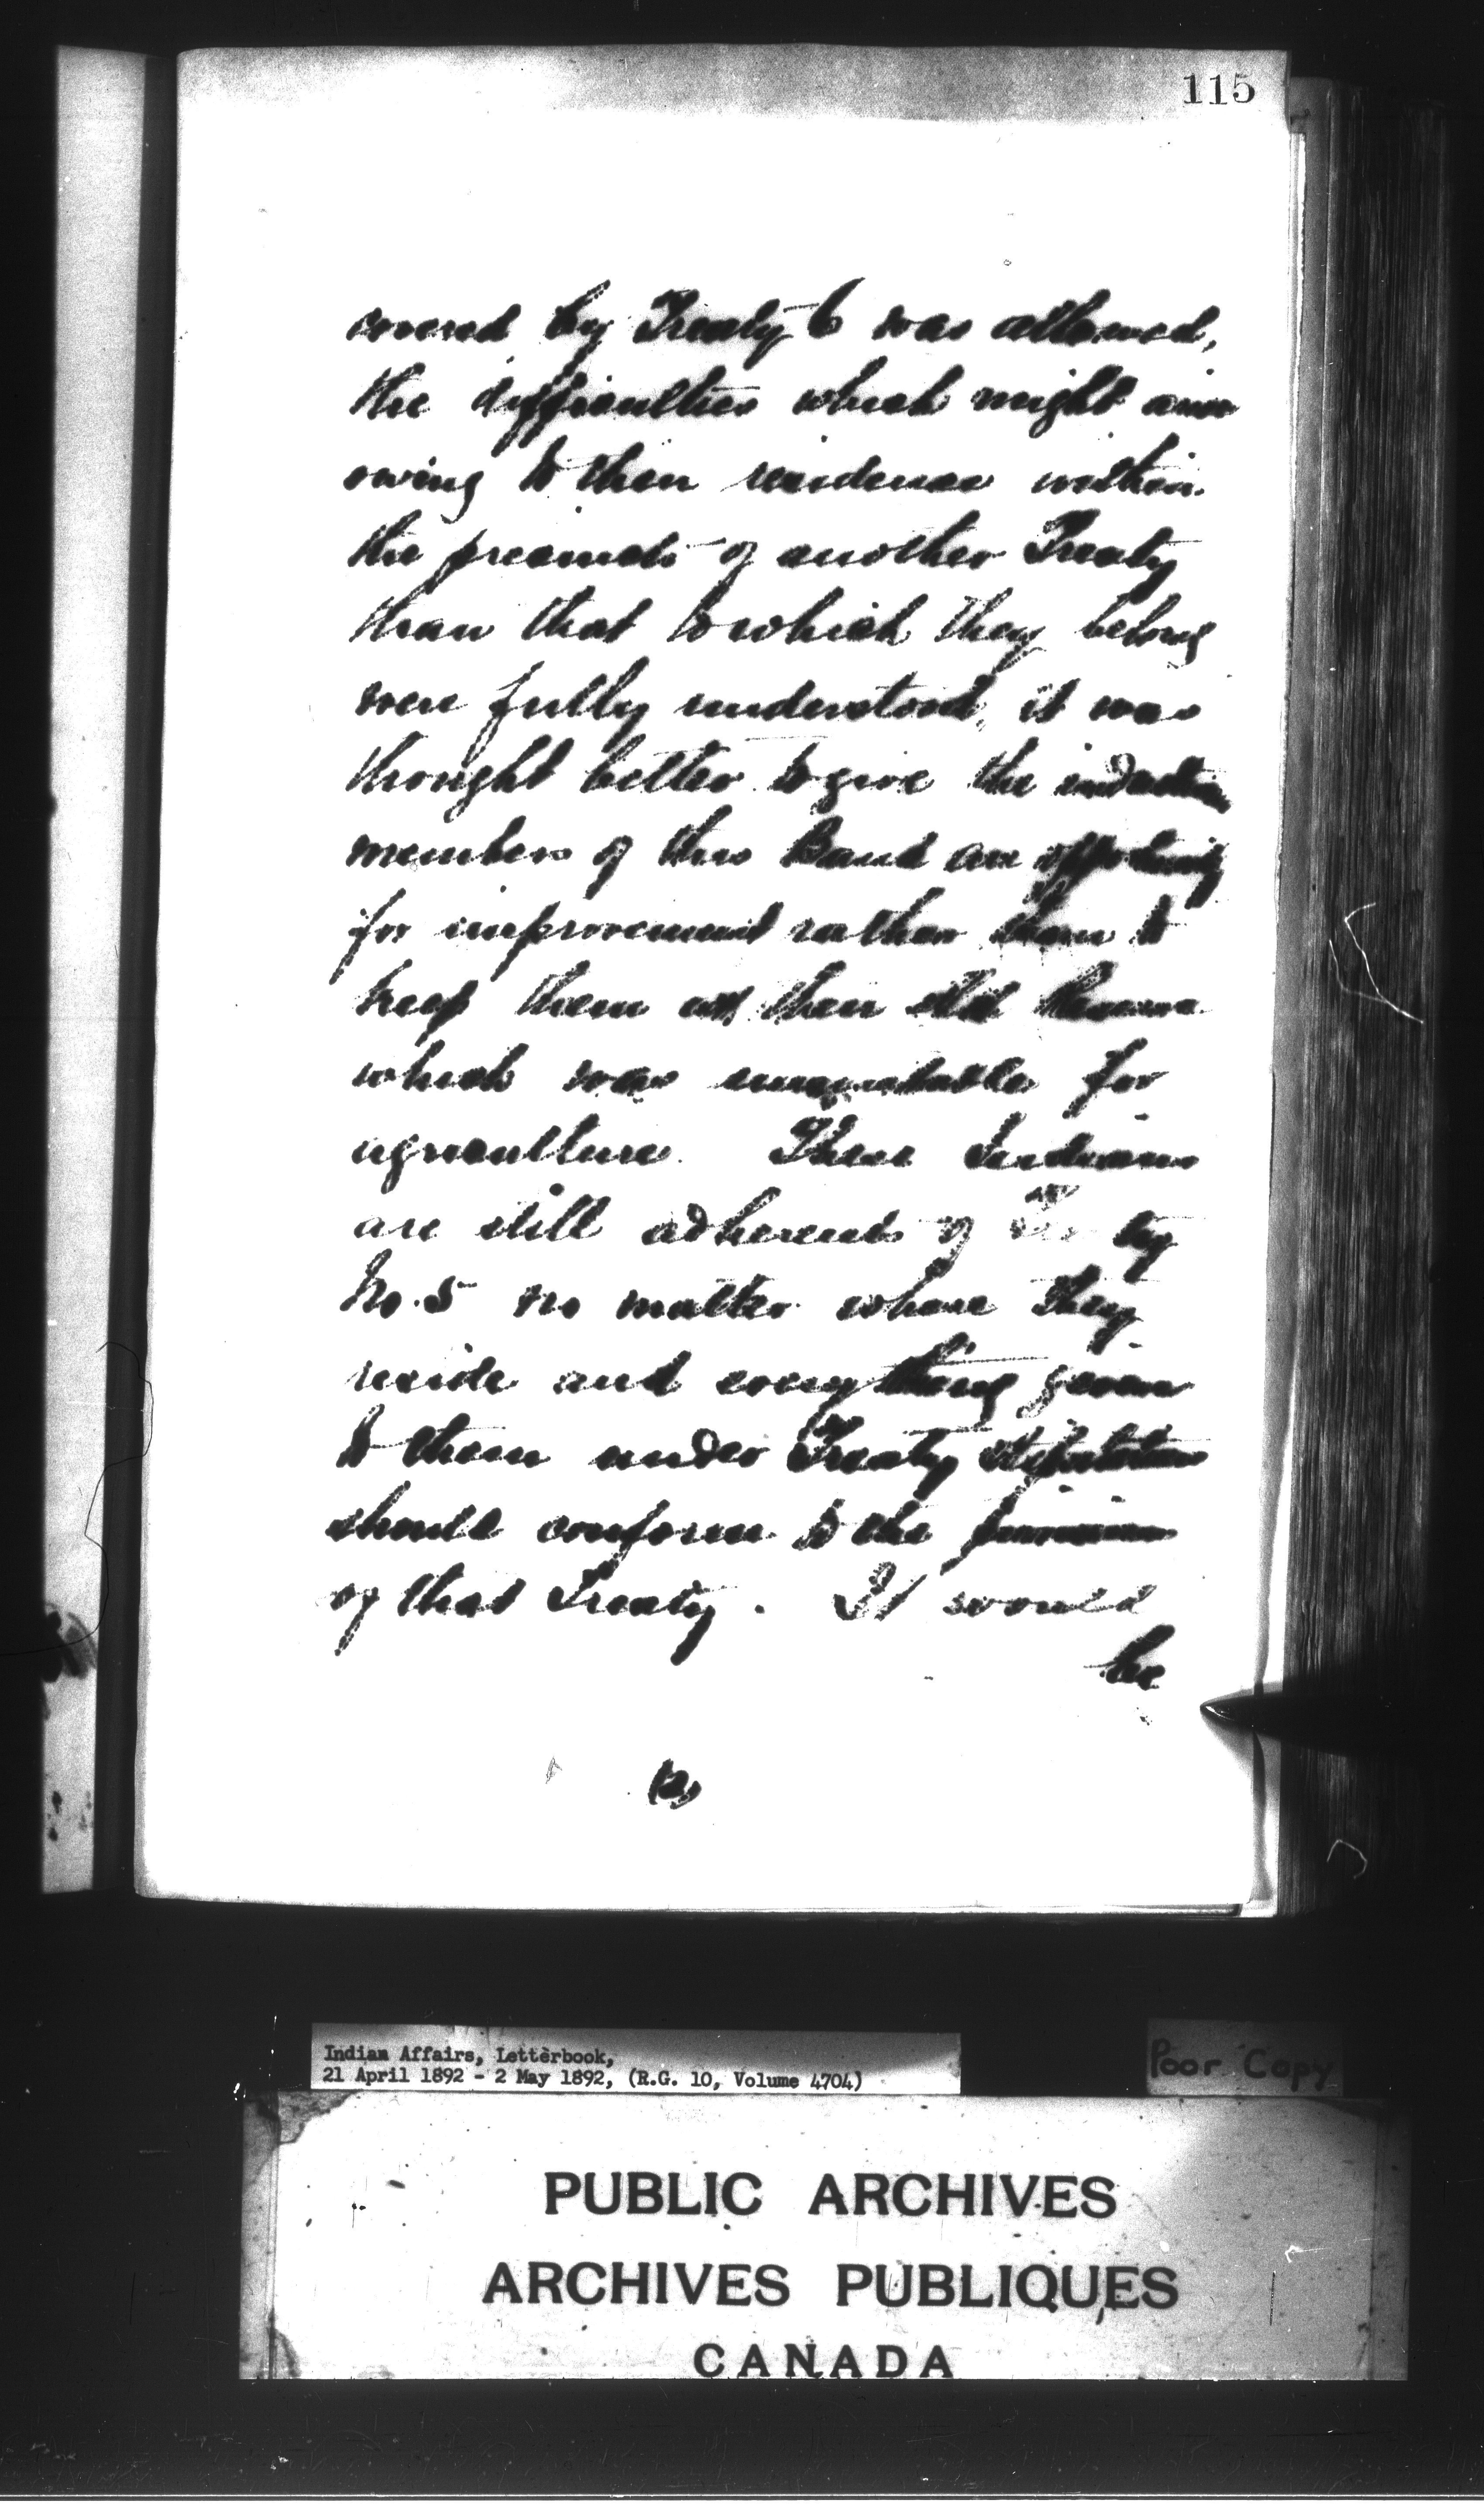 115
covered by Treaty 6 was allowed,
the difficulties which might arise
owing to their residence within
the precincts of another Treaty
than that to which they belong
were fully understood, it was
thought better to give the
members of this Band an opportunity
for improvement rather than to
keep them at their old
which was unsuitable for
agriculture. These Indians
are still adherents of Tre ty
No. 5 no matter where they
reside and everything given
to them under Treaty stipulations
should conform to the provisions
of that Treaty. It would
be
(2)
Indian Affairs, Letterbook,
21 April 1892 - 2 May 1892, (R.G. 10, Volume 4704)
Poor Copy
PUBLIC ARCHIVES
ARCHIVES PUBLIQUES
CANADA